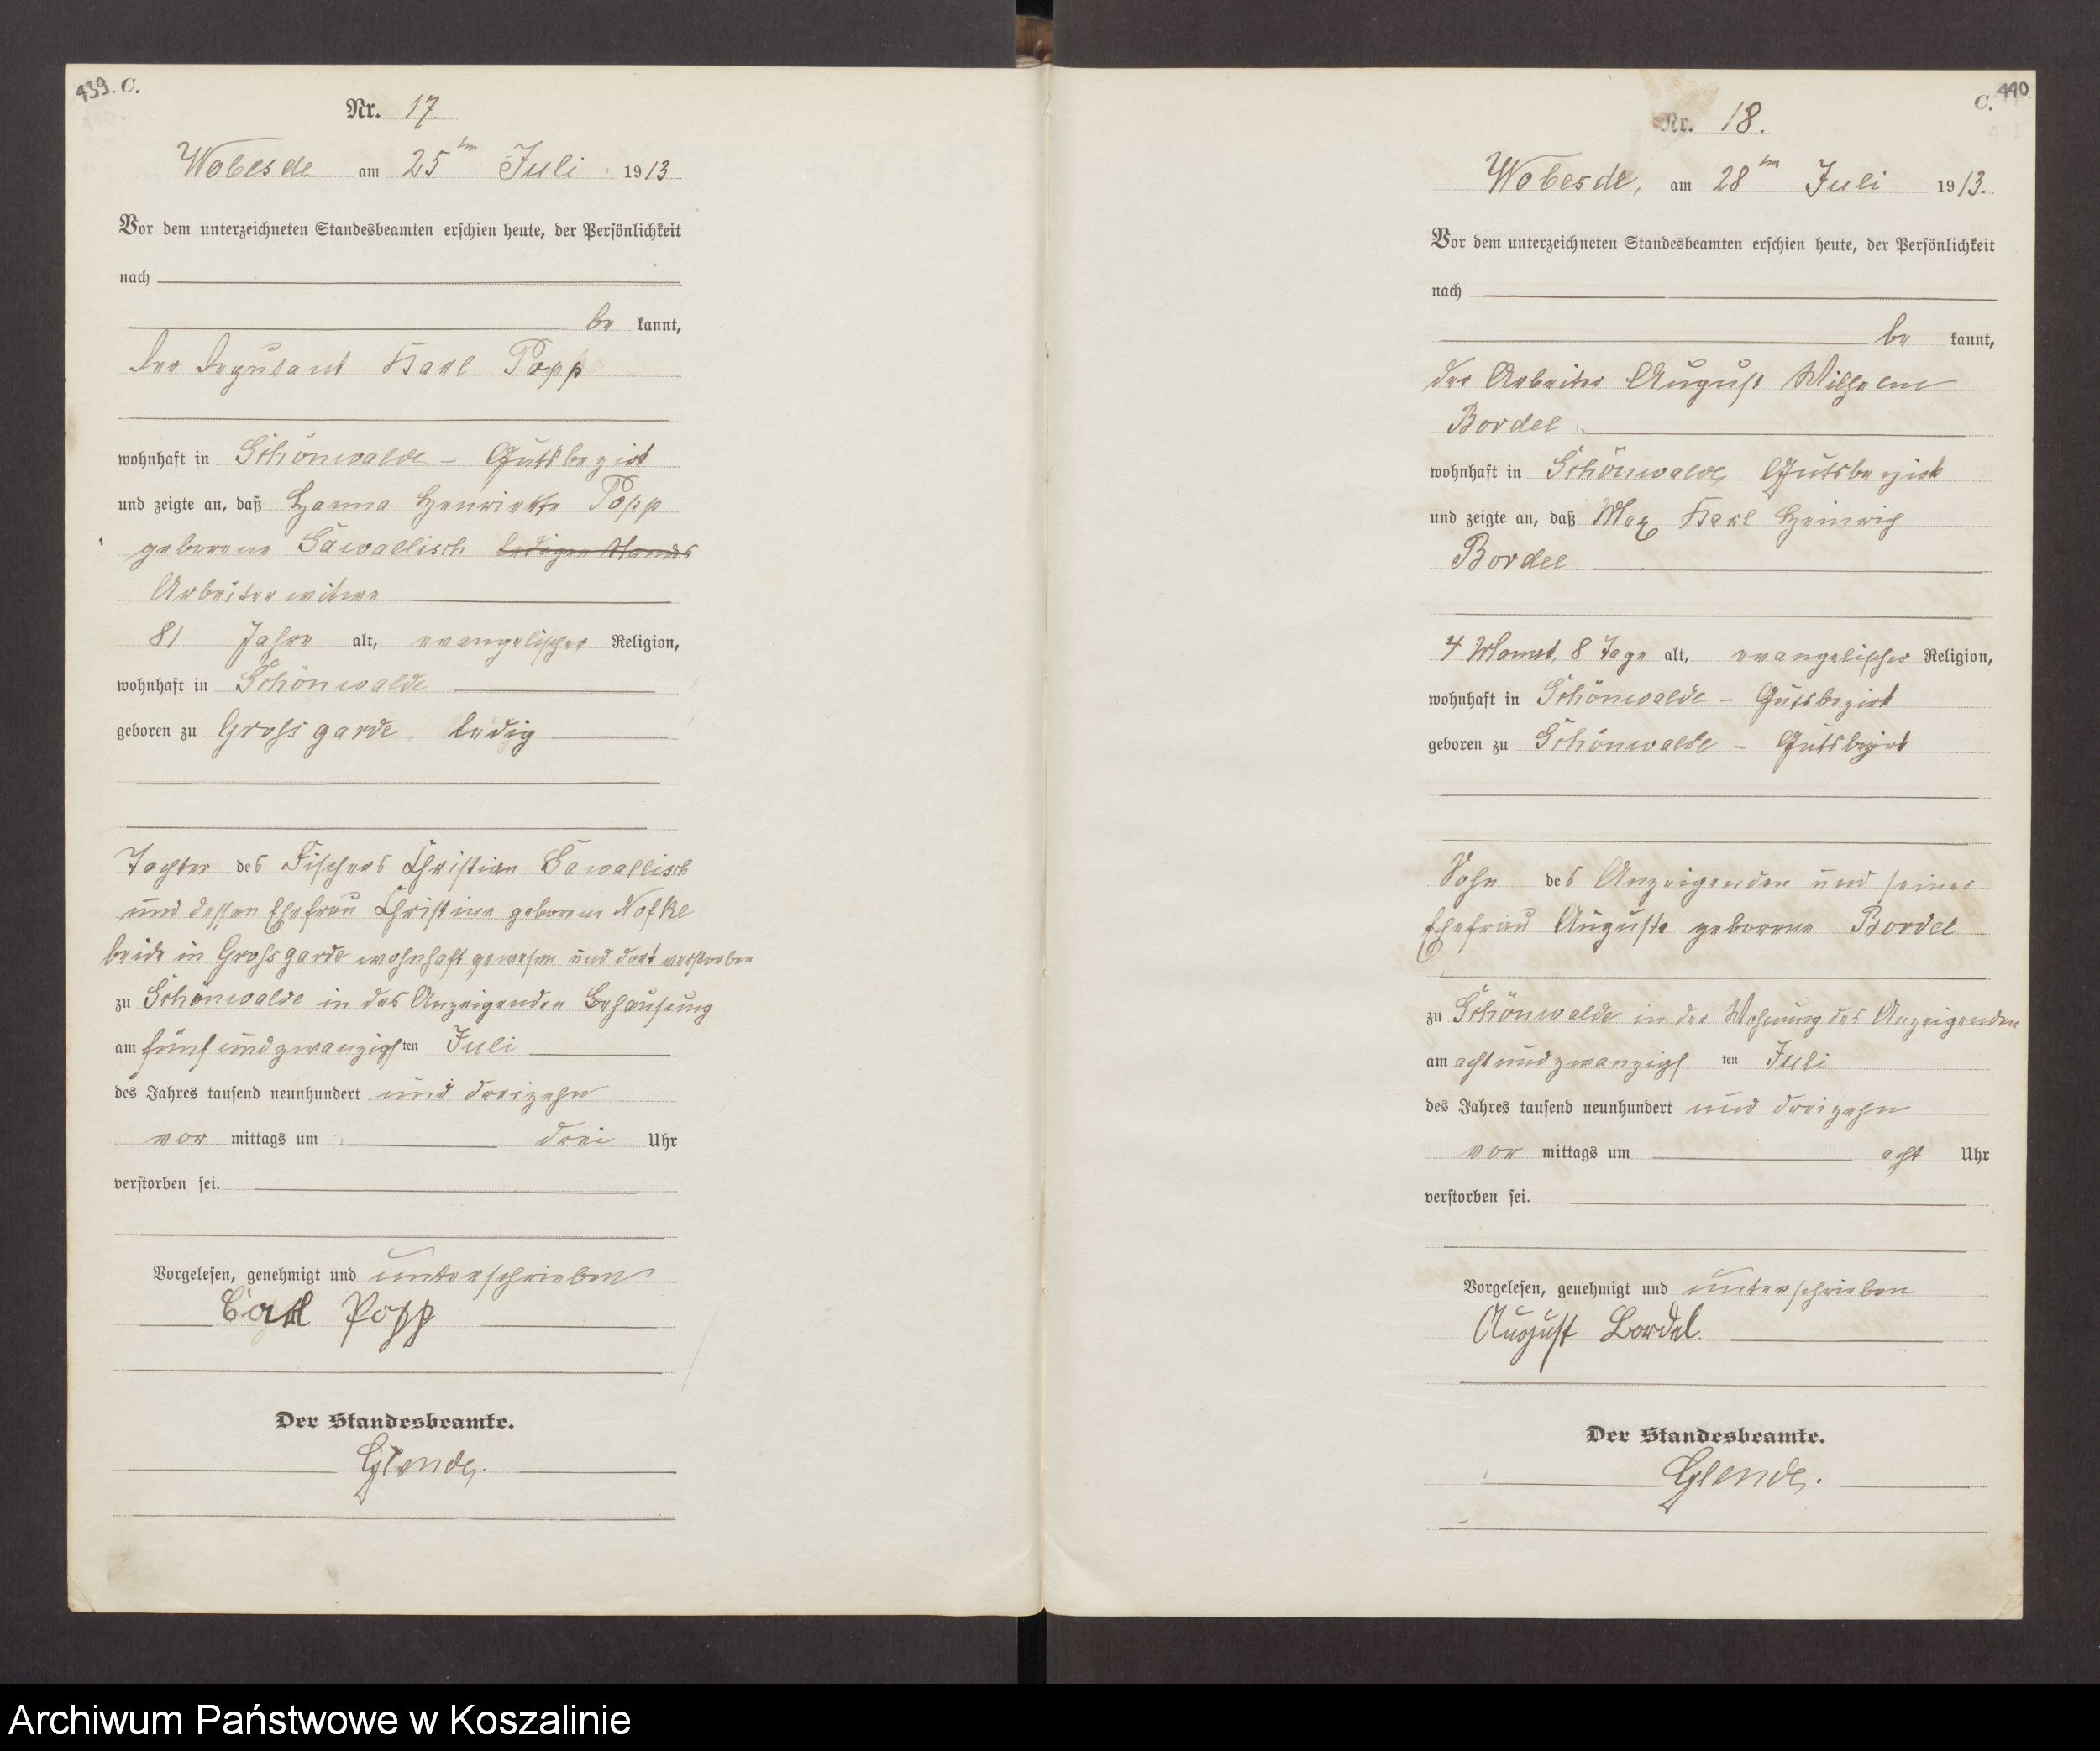 439. C.
Nr. 17.
Wobesde am 25ten Juli 1913
Vor dem unterzeichneten Standesbeamten erschien heute, der Persönlichkeit
nach
be kannt,
der Deputant Karl Popp
wohnhaft in Schönwalde – Gutsbezirk
und zeigte an, daß Hanna Henriette Popp
geborene Sawallisch ledigen Stands
Arbeiterwitwe
81 Jahre alt, evangelischer Religion,
wohnhaft in Schönwalde
geboren zu Grossgarde, ledig
Tochter des Fischers Christian Sawallisch
und dessen Ehefrau Christine geborene Nofke
beide in Grossgarde wohnhaft gewesen und dort verstorben
zu Schönwalde in des Anzeigenden Behausung
am fünfundzwanzigsten Juli
des Jahres tausend neunhundert und dreizehn
vor mittags um drei Uhr
verstorben sei.
Vorgelesen, genehmigt und unterschrieben
Carl Popp
Der Standesbeamte.
Glende.
C. 440
Nr. 18.
Wobesde, am 28ten Juli 1913.
Vor dem unterzeichneten Standesbeamten erschien heute, der Persönlichkeit
nach
be kannt,
der Arbeiter August Wilhelm
Bordel
wohnhaft in Schönwalde, Gutsbezirk
und zeigte an, daß Max Karl Heinrich
Bordel
4 Monat, 8 Tage alt, evangelischer Religion,
wohnhaft in Schönwalde – Gutsbezirk
geboren zu Schönwalde – Gutsbezirk
Sohn des Anzeigenden und seiner
Ehefrau Auguste geborene Bordel
zu Schönwalde in der Wohnung des Anzeigenden
am achtundzwanzigsten Juli
des Jahres tausend neunhundert und dreizehn
vor mittags um acht Uhr
verstorben sei.
Vorgelesen, genehmigt und unterschrieben
August Bordel.
Der Standesbeamte.
Glende.
Archiwum Państwowe w Koszalinie